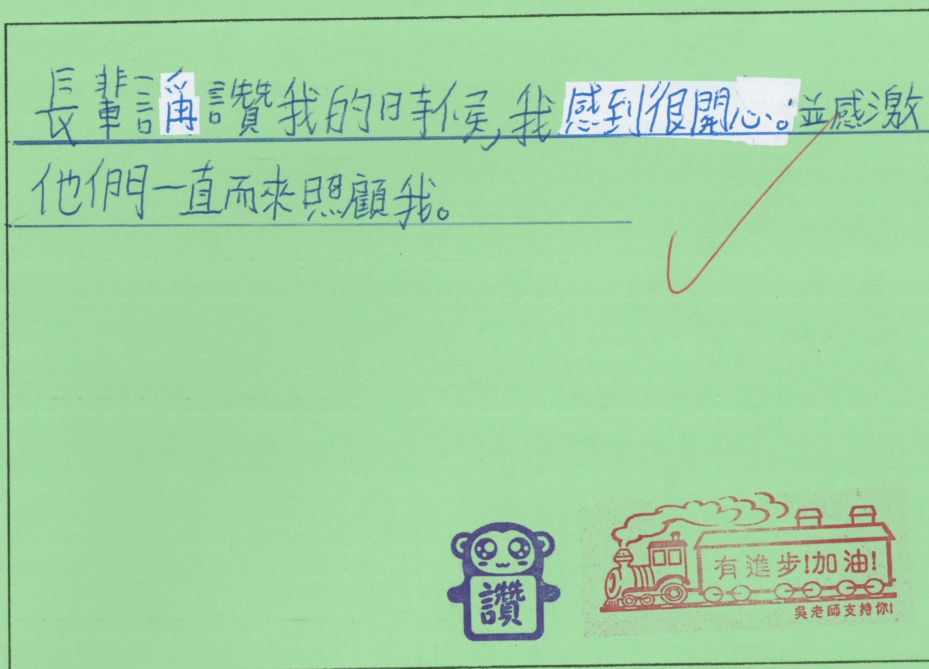 長輩稱讚我的時候,我感到很開心。並感激
他們一直而來照顧我。
讚
有進步!加油!
吳老師支持你!